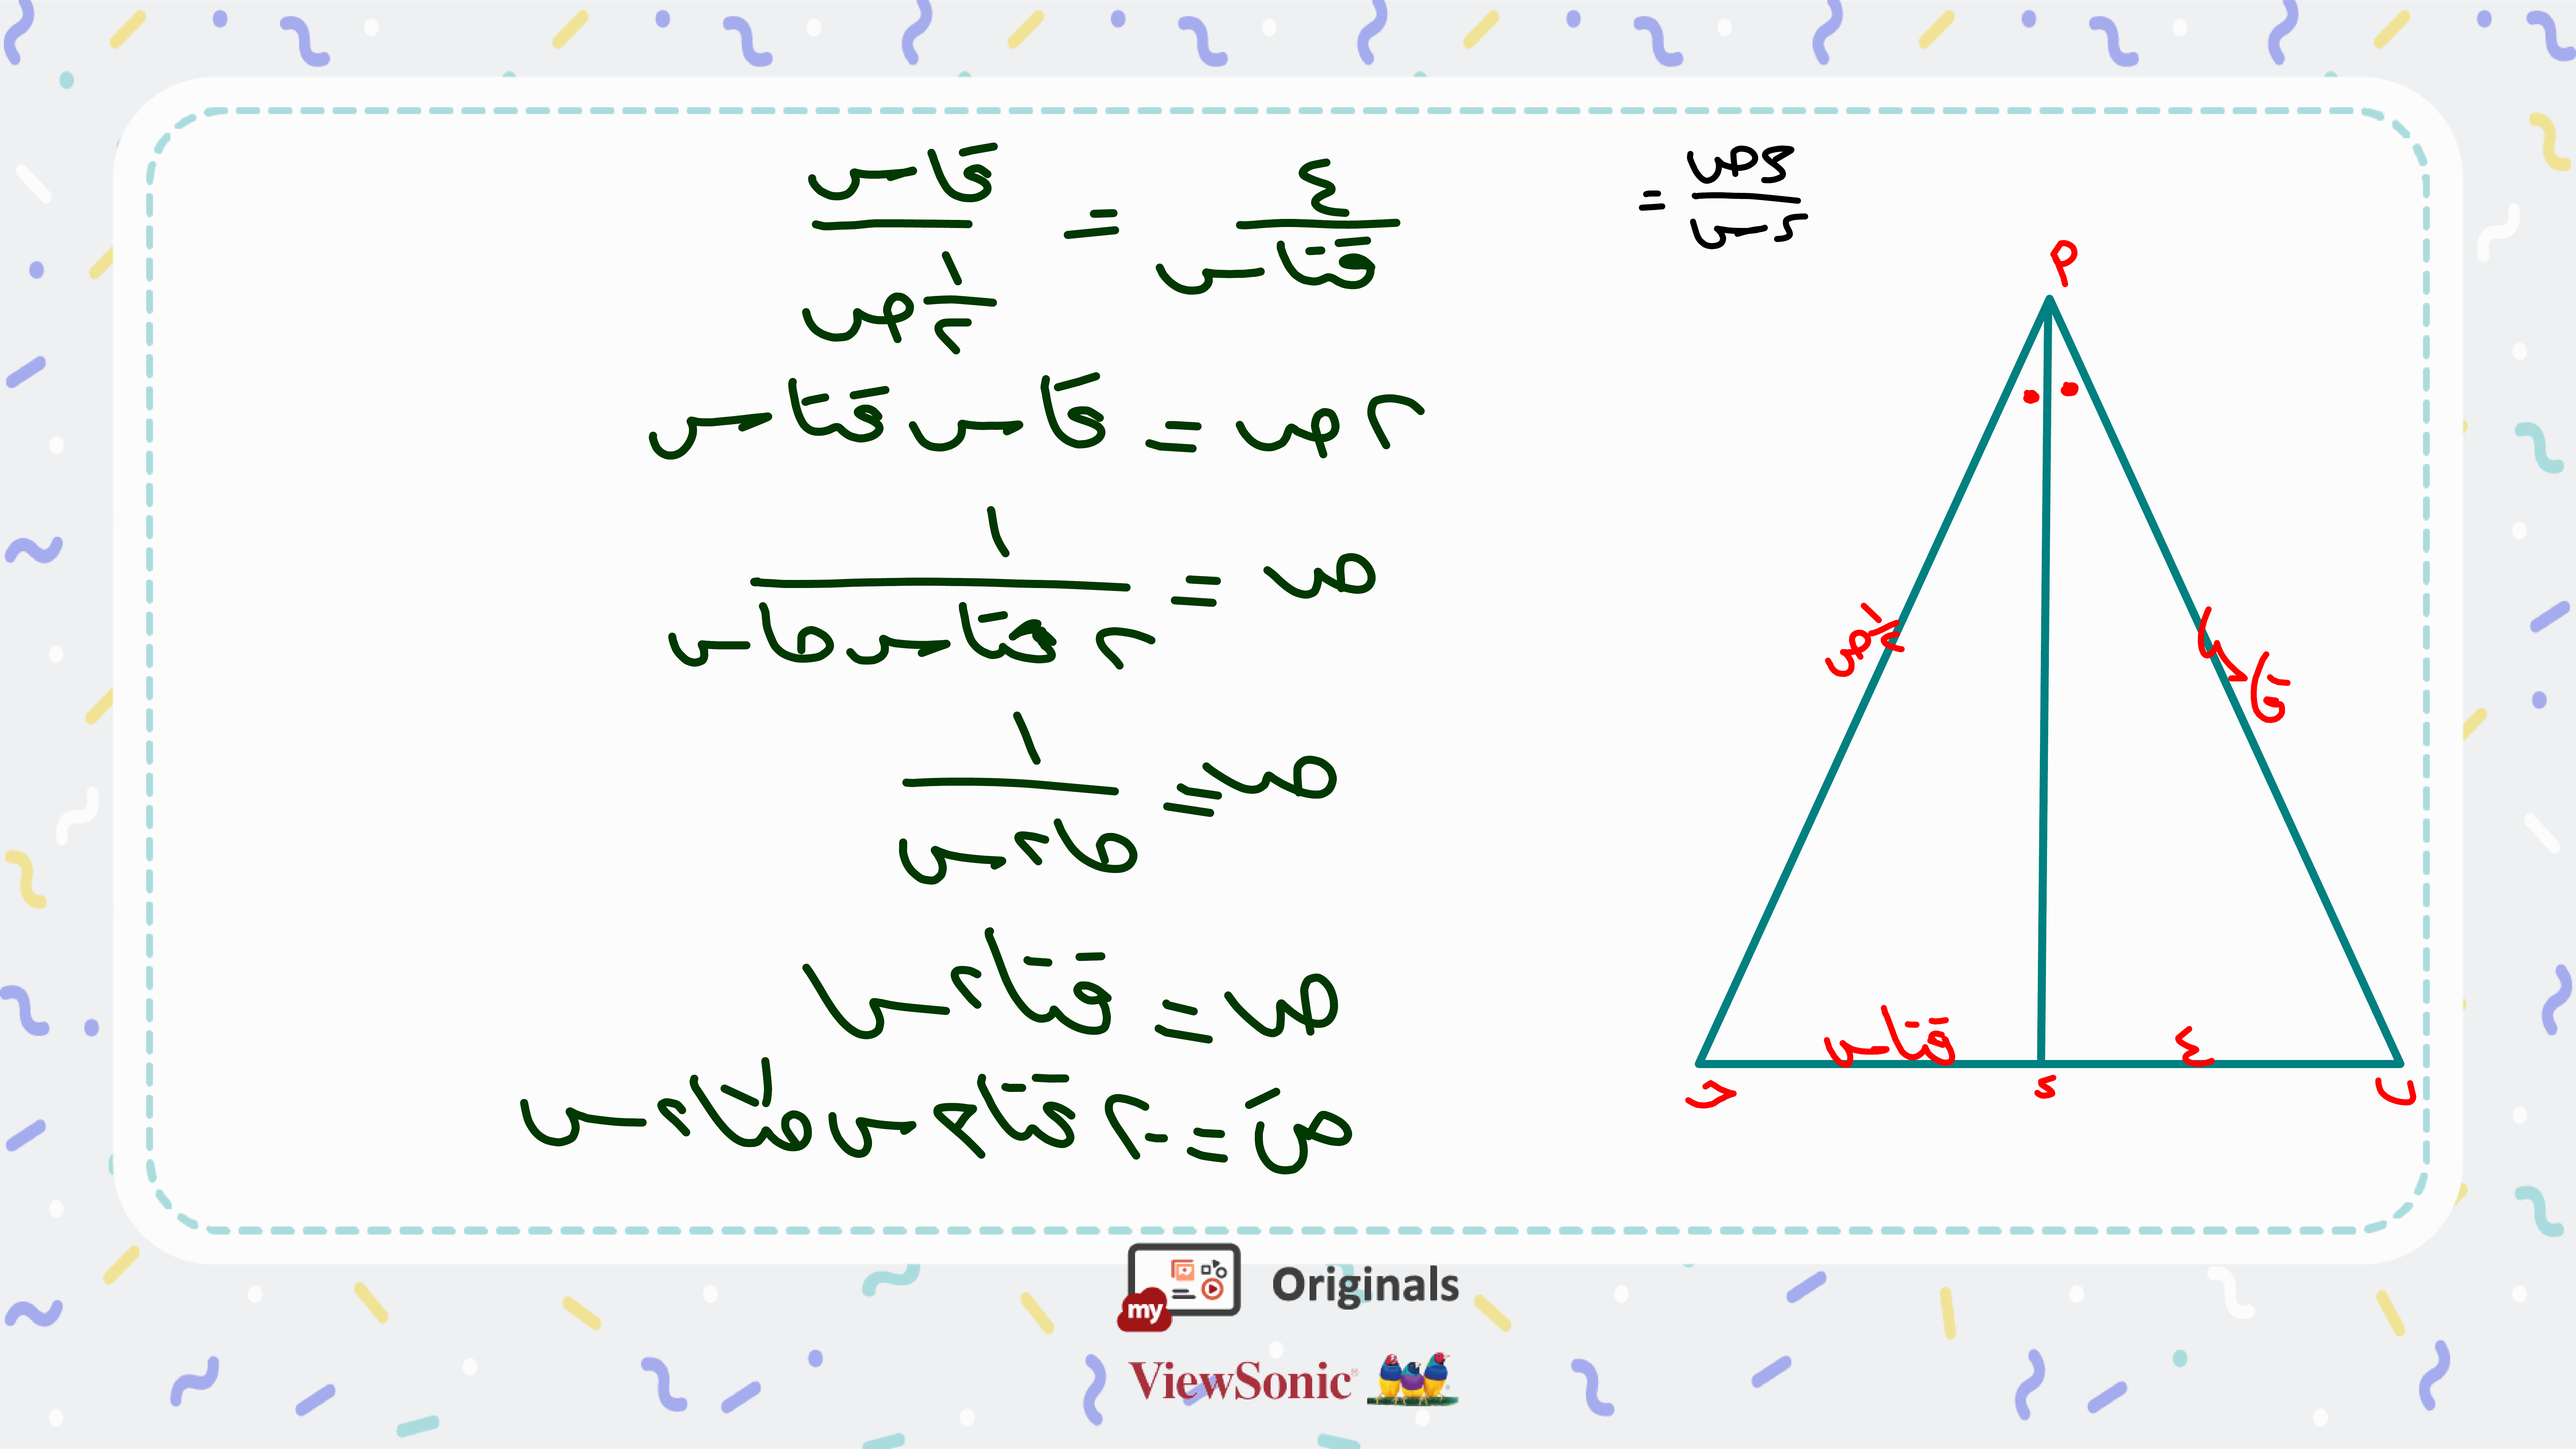 ءص / ءس =
٤ / قتاس = قاس / ١/٢ ص
٢ص = قاس قتاس
ص = ١ / ٢ حتاس حاس
ص = ١ / حا٢س
ص = قتا٢س
صَ = -٢ قتا٢س طتا٢س
٢
١/٢ ص
قاس
قتاس
٤
ح
ء
ب
my
Originals
ViewSonic